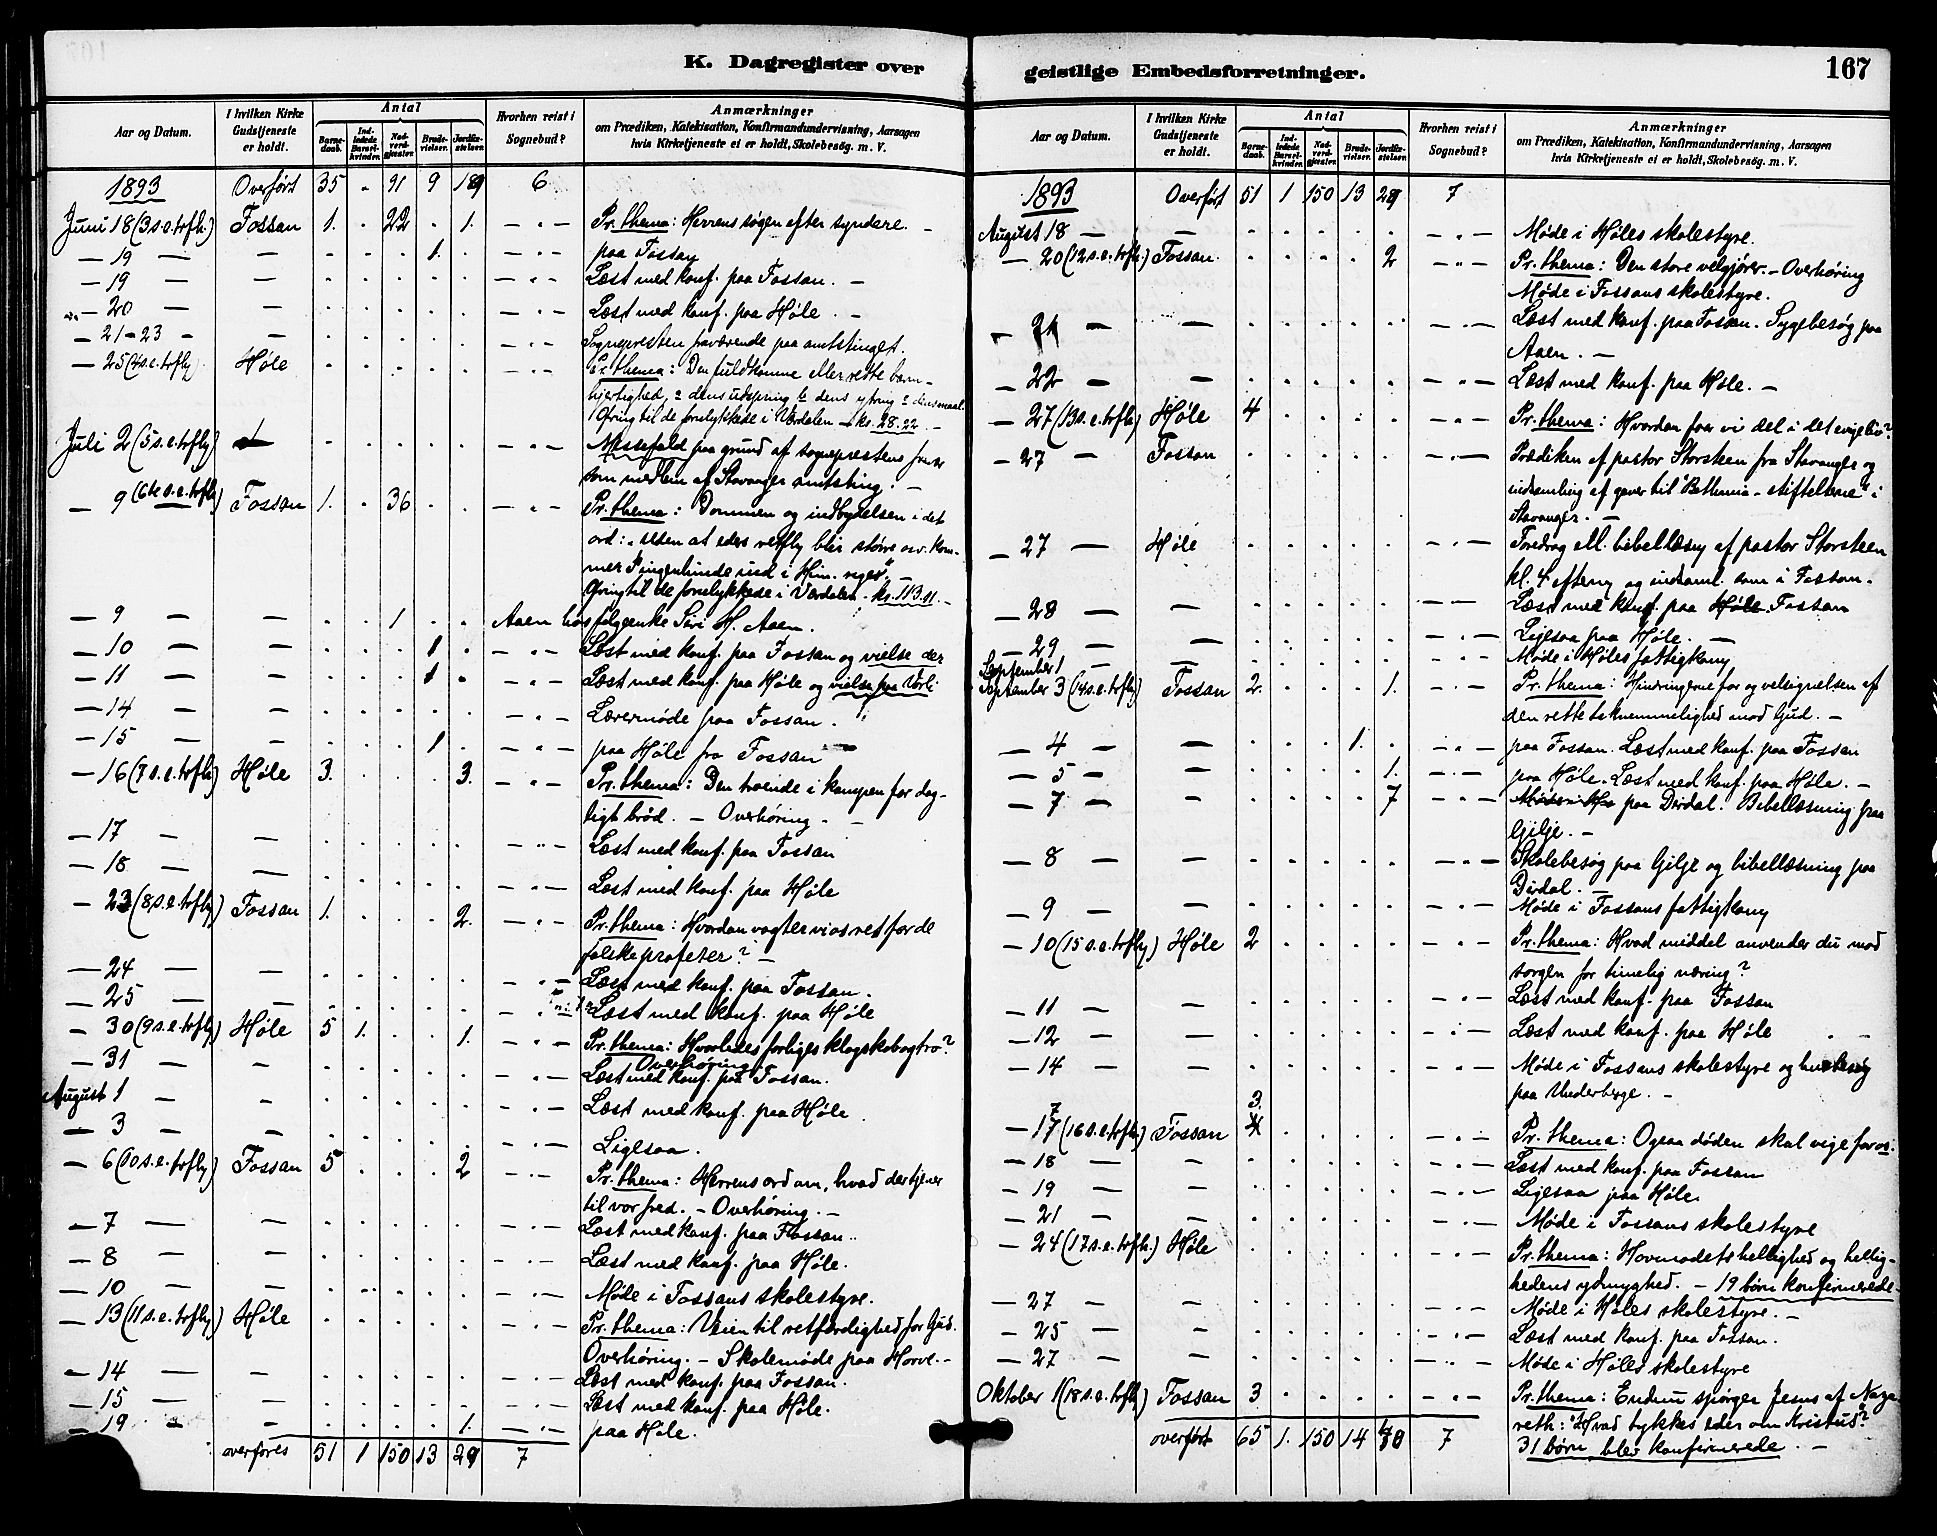 K. Dagregister over
Aar og Datum. I hvilken Kirke Gudstjeneste er holdt. Antal Barnedaab. Indledede Barselkvinder. Nadverdgjæster. Brudevielser. Jordfæstelser. Hvorhen reist i Sognebud? Anmærkninger om Prædiken, Katekisation, Konfirmandundervisning, Aarsagen hvis Kirketjeneste ei er holdt, Skolebesøg. m. V.
1893 Overført 35 - 91 9 6
Juni 18 (3 s.e.trfh.) Fossan 1. . 22 . 1. — " — Pr. thema: Herrens søgen efter syndere. —
— 19 — — . . . 1. . — " — paa Fossan
— 19 — — . . . . . — " — Læst med konf. paa Fossan. —
— 20 — — . . . . . — " — Læst med konf. paa Høle. —
— 21-23 — — . . . . . — " — Sognepresten fraværende paa amtstinget.
— 25 (4 s.e. trfh) Høle . . . . . — " — Pr. thema: Den fuldkomne eller rette barm-
hjertighed, dens udspring dens ytring dens maal.
Ofring til de forulykkede i Værdalen kr. 28.22. —
Juli 2 (5 s.e. trfh) . . . . . — " — Messefald paa grund af sogneprestens fravær
som medlem af Stavanger amtsting. —
— 9 (6te s.e. trfh) Fossan 1. . 36 . . — " — Pr. thema: Dommen og indbydelsen i det
ord: "uden at eders retfh blir større osv. kom-
mer I ingenlunde ind i Him. riges". —
Ofring til de forulykkede i Værdalen. kr. 113.11. —
— 9 — — . . 1 . . Aaen hos følgeenke Siri H. Aaen.
— 10 — — . . . 1 . — " — Læst med konf. paa Fossan og vielse der
— 11 — — . . . 1 . — " — Læst med konf. paa Høle og vielse paa
— 14 — — . . . . . — " — Lærermøde paa Fossan.
— 15 — — . . . 1 . — " — paa Høle fra Fossan
— 16 (7 s.e. trfh) Høle 3. . . . 3. — " — Pr. thema: Den troende i kampen for dag-
ligt brød. — Overhøring. —
— 17 — — . . . . . — " — Læst med konf. paa Fossan
— 18 — — . . . . . — " — Læst med konf. paa Høle
— 23 (8 s.e. trfh) Fossan 1. . . . 2. — " — Pr. thema: Hvordan vogter vi os ret for de
falske profeter? —
— 24 — — . . . . . — " — Læst med konf. paa Fossan.
— 25 — — . . . . . — " — Læst med konf. paa Høle
— 30 (9 s.e. trfh) Høle 5 1. . . 1. — " — Pr. thema: Hvorledes forliges klogskab og tro?
Overhøring
— 31 — — . . . . . — " — Læst med konf. paa Fossan.
August 1 — — . . . . . — " — Læst med konf. paa Høle
— 3 — — . . . . . — " — Ligesaa.
— 6 (10 s.e. trfh) Fossan 5 . . . 2 — " — Pr. thema: Herrens ord om, hvad der tjener
til vor fred. — Overhøring. —
— 7 — — . . . . . — " — Læst med konf. paa Fossan..
— 8 — — . . . . . — " — Læst med konf. paa Høle.
— 10 — — . . . . . — " — Møde i Fossans skolestyre.
— 13 (11 s.e. trfh) Høle . . . . . — " — Pr. thema: Veien til retfærdighed for Gud.
Overhøring. — Skolemøde paa Horve. —
— 14 — — . . . . . — " — Læst med konf. paa Fossan.
— 15 — — . . . . . — " — Læst med konf. paa Høle.
— 19 — — . . . . 1. — " — paa Høle.
overføres 51 1 150 13 29 7
geistlige Embedsforretninger. 167
Aar og Datum. I hvilken Kirke Gudstjeneste er holdt. Antal Barnedaab. Indledede Barselkvinder. Nadverdgjæster. Brudevielser. Jordfæstelser. Hvorhen reist i Sognebud? Anmærkninger om Prædiken, Katekisation, Konfirmandundervisning, Aarsagen hvis Kirketjeneste ei er holdt, Skolebesøg. m. V.
1893 Overført 51 1 150 13 29 7
August 18 — — . . . . . — " — Møde i Høles skolestyre.
— 20 (12 s.e. trfh.) Fossan. . . . . 2 — " — Pr. thema: Den store velgjører. — Overhøring
Møde i Fossans skolestyre.
— 21 — — . . . . . — " — Læst med konf. paa Fossan. Sygebesøg paa
Aaen. —
— 22 — — . . . . . — " — Læst med konf. paa Høle. —
— 27 (13 s.e. trfh) Høle 4 . . . . — " — Pr. thema: Hvordan faar vi del i det evige liv?
— 27 — Fossan . . . . . — " — Prædiken af pastor Storsteen fra Stavanger og
indsamling af gaver til "Bethania-stiftelserne" i
Stavanger. —
— 27 — Høle . . . . . — " — Foredrag ell. bibellæsng af pastor Storsteen
kl. 4 efterm og indsaml. som i Fossan.
— 28 — — . . . . . — " — Læst med konf. paa Høle Fossan
— 29 — — . . . . . — " — Ligesaa paa Høle. —
September 1 — — . . . . . — " — Møde i Høles fattigkom
September 3 (14 s.e. trfh) Fossan 2. . . . 1. — " — Pr. thema: Hindringerne for og velsignelsen af
den rette taknemmelighed mod Gud. —
— 4 — — . . . 1. . — " — paa Fossan. Læst med konf. paa Fossan
— 5 — — . . . . 1. — " — paa Høle. Læst med konf. paa Høle. —
— 7 — — . . . . 7 — " — paa Dirdal. Bibellæsning paa
Gilje. —
— 8 — — . . . . . — " — Skolebesøg paa Gilje og bibellæsning paa
Dirdal. —
— 9 — — . . . . . — " — Møde i Fossans fattigkom
— 10 (15 s.e. trfh) Høle 2 . . . . — " — Pr. thema: Hvad middel anvender du mod
sorgen for timelig næring?
— 11 — — . . . . . — " — Læst med konf. paa Fossan
— 12 — — . . . . . — " — Læst med konf. paa Høle
— 14 — — . . . . . — " — Møde i Fossans skolestyre og husbesøg
paa Underberge. —
— 17 (16 s.e. trfh) Fossan 3. . . . . — " — Pr. thema: Ogsaa døden skal vige for os.
— 18 — — . . . . . — " — Læst med konf. paa Fossan
— 19 — — . . . . . — " — Ligesaa paa Høle.
— 21 — — . . . . . — " — Møde i Fossans skolestyre
— 24 (17 s.e. trfh.) Høle . . . . . — " — Pr. thema: Hovmodets hellighed og hellig-
hedens ydmyghed. — 19 børn konfirmerede. —
— 27 — — . . . . . — " — Møde i Høles skolestyre. —
— 25 — — . . . . . — " — Læst med konf. paa Fossan.
— 27 — — . . . . . — " — Møde i Høles skolestyre
Oktober 1 (18 s.e. trfh) Fossan 3 . . . . — " — Pr. thema: Endnu spørger Jesus af Naza-
reth: "Hvad tykkes eder om Kristus?"
31 børn blev konfirmerede. —
overført 65 1. 150 14 7